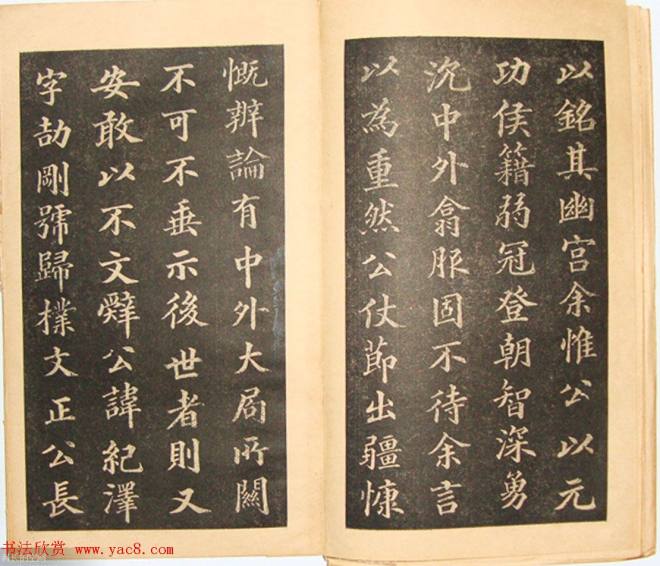 以銘其幽宫余惟公以元
功侯籍弱冠登朝智深勇
沉中外翕服固不待余言
以為重然公仗節出疆慷
慨辨論有中外大局所關
不可不垂示後世者則又
安敢以不文辭公諱紀澤
字劼剛號歸樸文正公長
书法欣赏 www.yac8.com